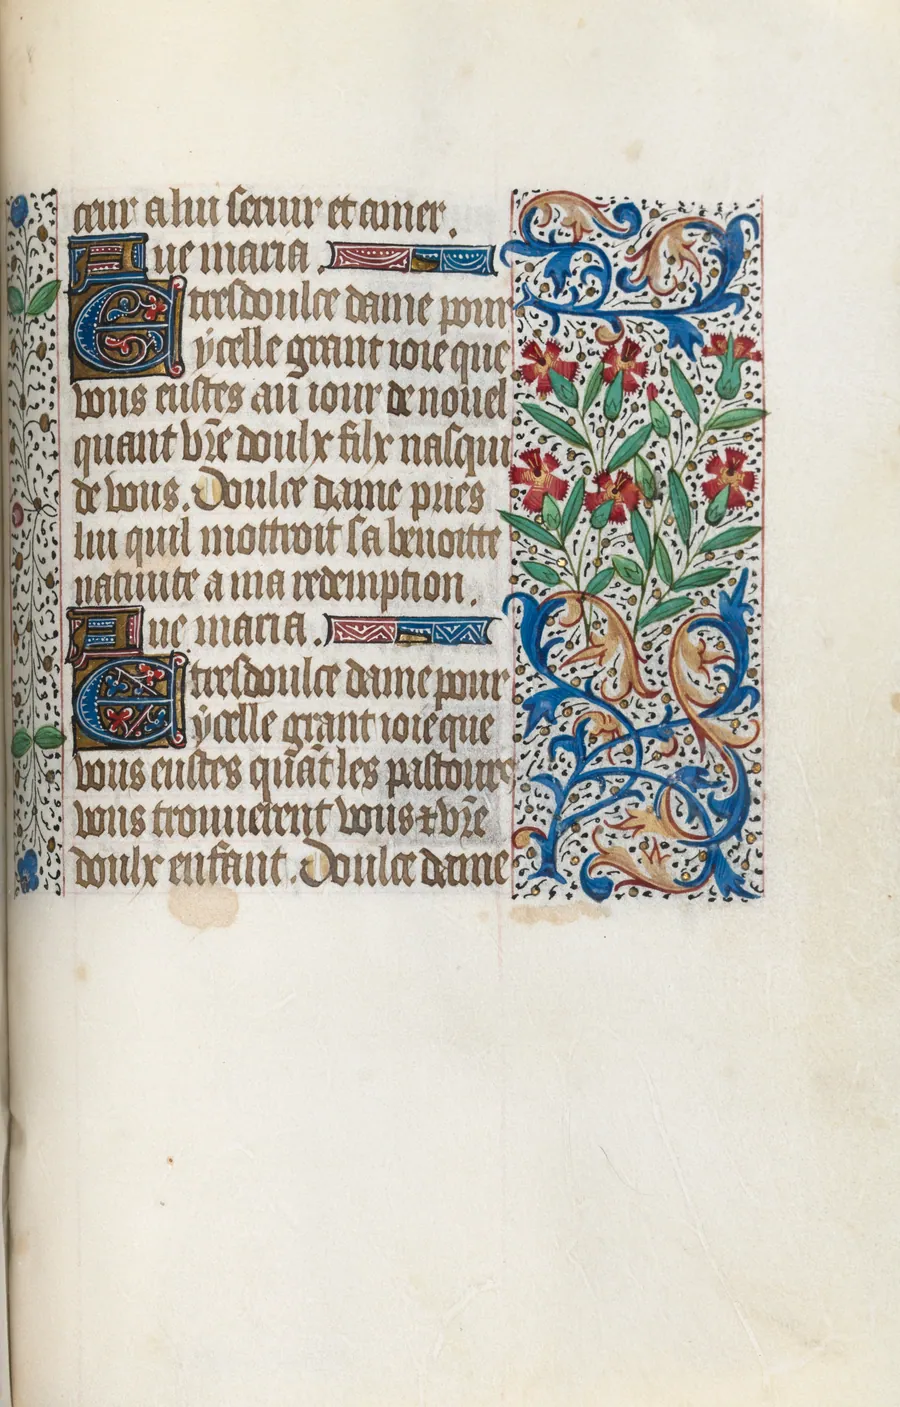 cœur a lui seruir et amer.
Aue maria.
E tresdoulce dame pour
ycelle grant ioie que
vous eustes au iour de nouel
quant vr̃e doulx filx nasqui
de vous. Doulce dame pries
lui quil mottroit sa benoitte
natiuite a ma redemption.
Aue maria.
E tresdoulce dame pour
ycelle grant ioie que
vous eustes quãt les pastoure
vous trouuerent vous & vr̃e
doulx enfant. Doulce dame